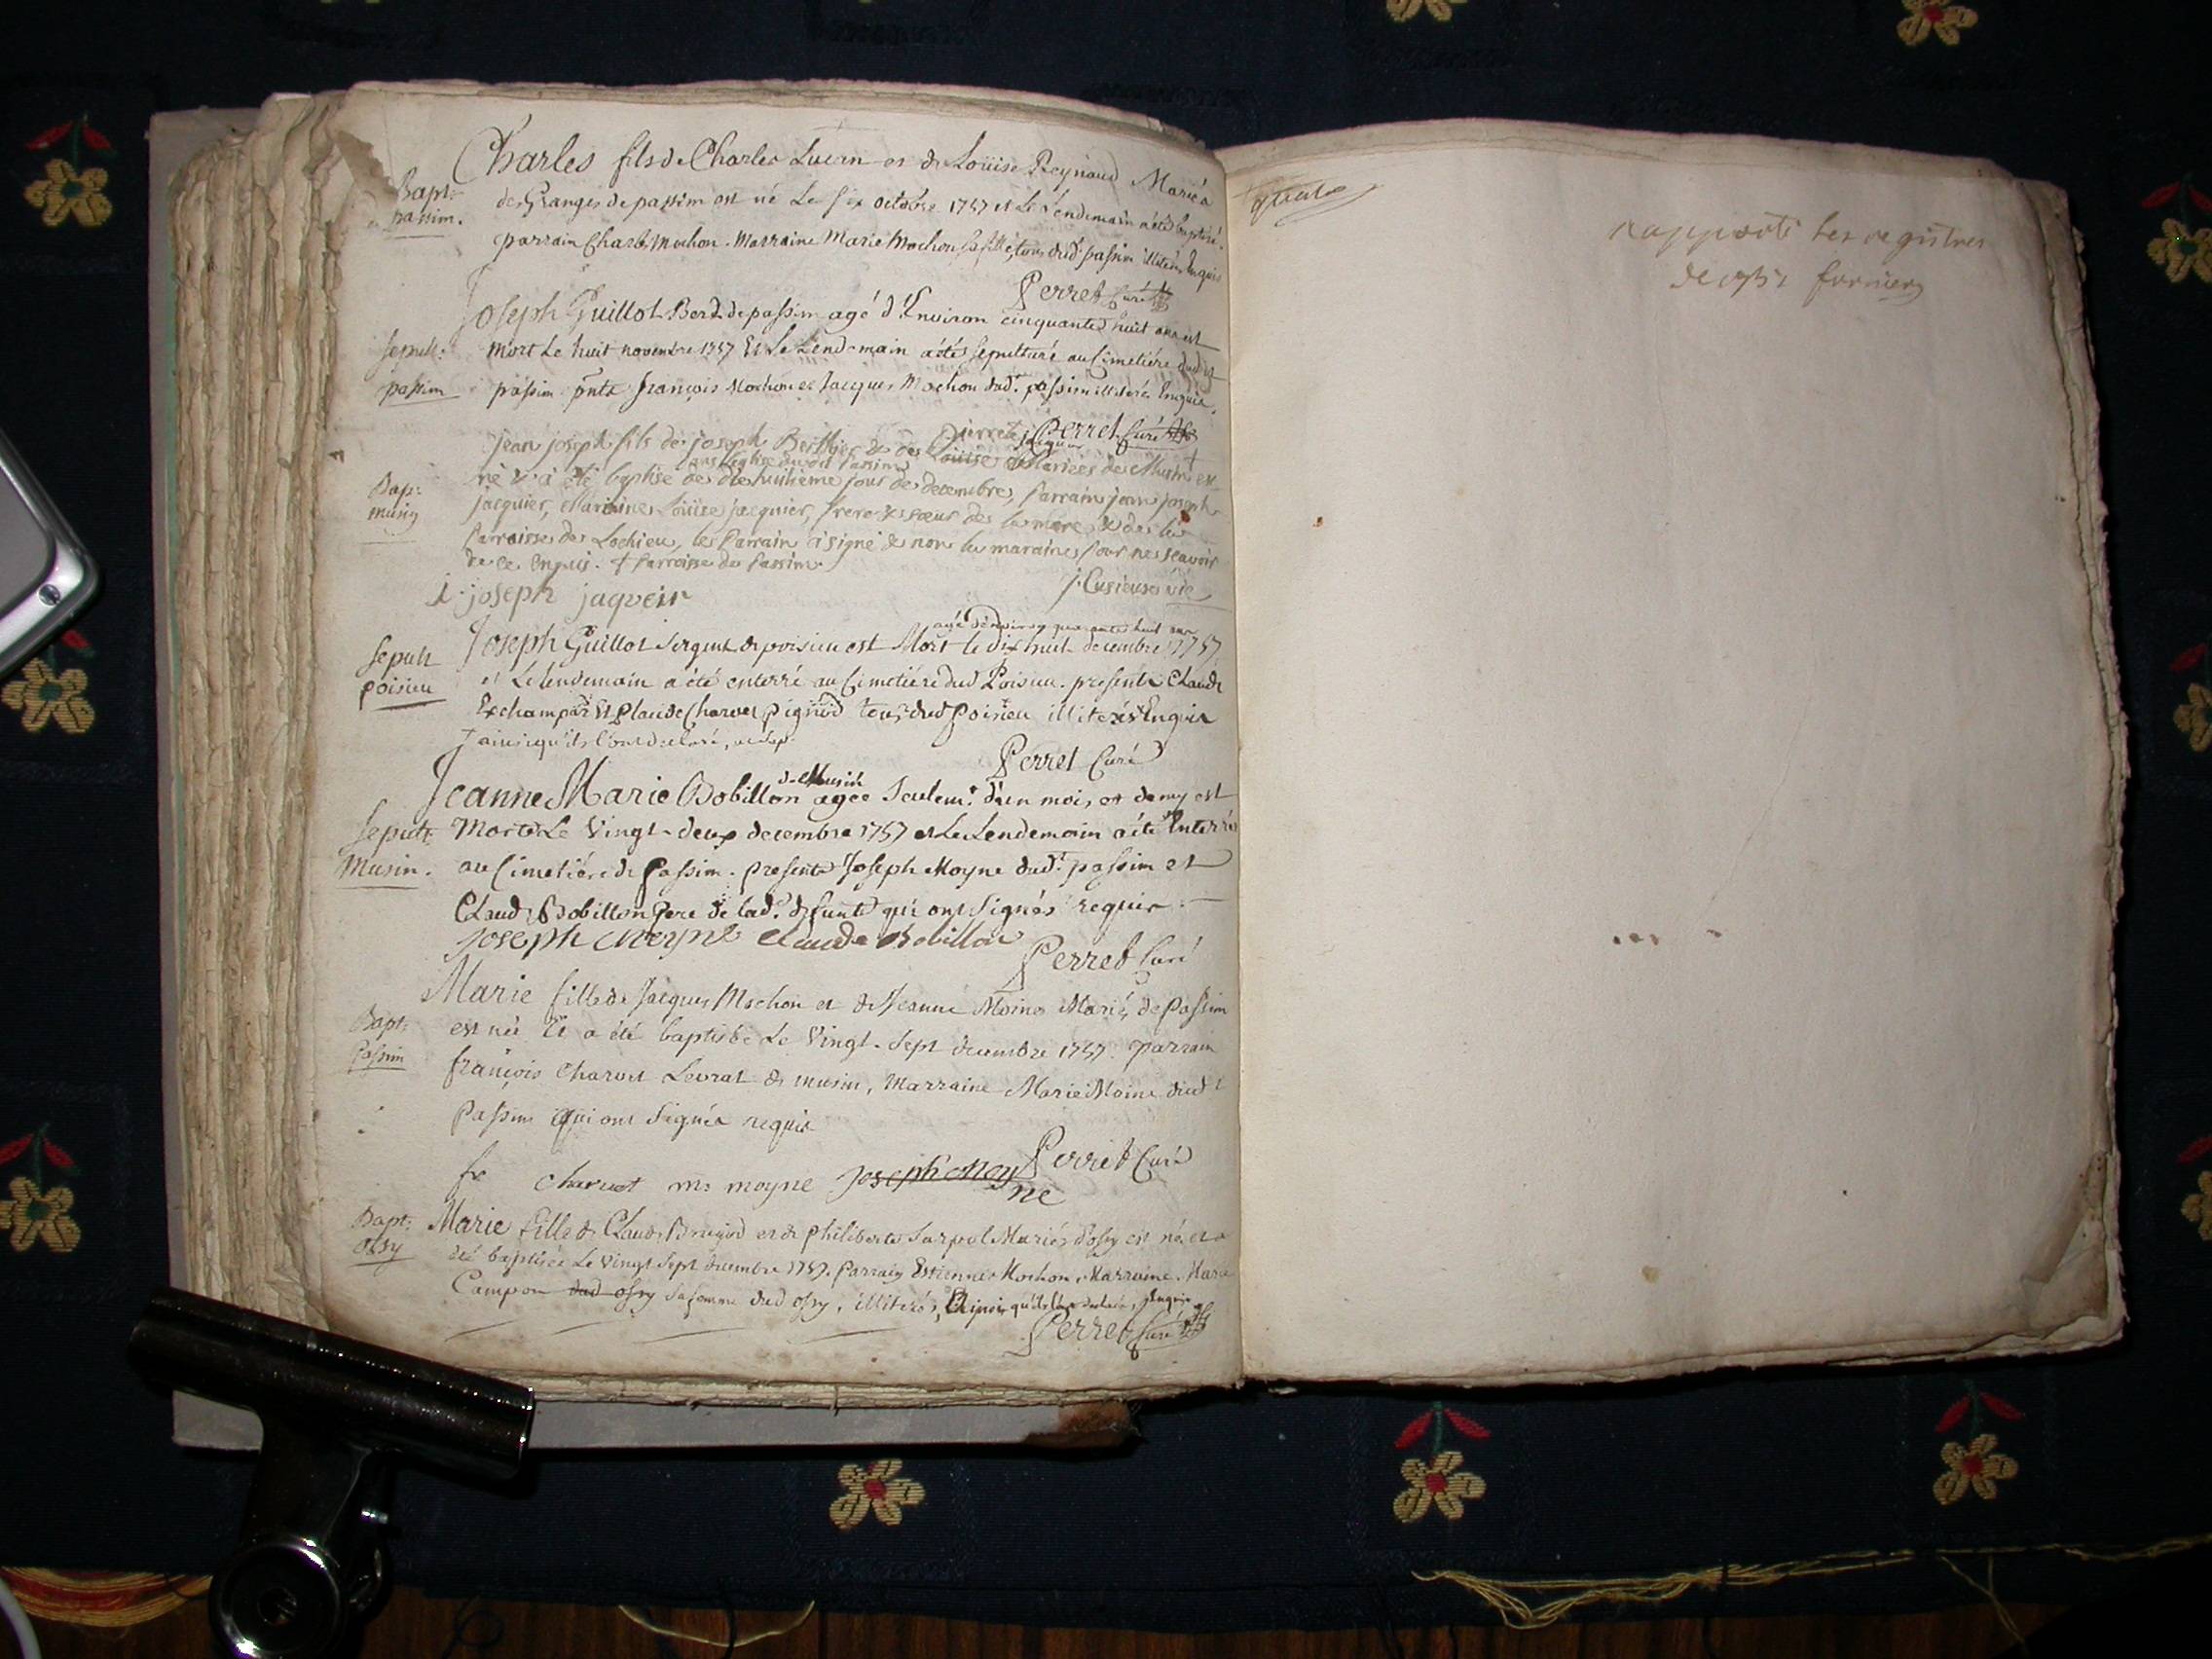 Charles fils de Charles Lucrin et de Loüise Reynaud Mariés
Bapt:
passim.
des Granges de passim est né Le six octobre 1757 et Le Lendemain a été baptisé.
parrain Charles Mochon. Marraine Marie Mochon sa fille, tous dud. passim illiterés Enquis
Perret Curé
Joseph Guillot Berd. de passim agé d'Environ cinquante huit ans est
sepult:
passim
mort Le huit novembre 1757 Et Le Lendemain a été sepulturé au Cimetiére dudit
passim. pnts françois Mochon et Jacques Mochon dud.t passim illiterés Enquis.
Perret Curé
jean joseph fils de joseph Berthier & de Loüise Mariées de Musin est
Pierrete jaquier
dans l'eglise dudit Passim
Bap:
musin
né & a été baptisé le dixhuitieme jour de decembre, Parrain jean joseph
jacquier, Maraine Loüise jacquier, frere & sœur de la mere & de la
Parroisse de Lochieu, le Parrain a signé & non la maraine pour ne sçavoir
de ce Enquis. + Parroisse de Passim.
j. joseph jaqueir
j. Cusieuse vic
agé d'environ quarante huit ans
Joseph Guillot Sergent de poisieu est Mort le dix huit decembre 1757
Sepult
poisieu
et Le lendemain a été enterré au Cimetiére dud Poisieu. presents Claude
Exchampar Et Claude Charvet Pignod tous dud poisieu illiterés Enquis
ainsi qu'ils l'ont declaré,
Perret Curé
de Musin
Jeanne Marie Bobillon agée Seulem.t d'un mois et demy est
Sepult
Musin.
Morte Le Vingt-deux decembre 1757 et Le Lendemain a été Enterrée
au Cimetiére de Passim. presents Joseph Moyne dud.t passim et
Claude Bobillon Pere de lad.e defunte qui ont Signés requis.
joseph moyne claude Bobillon
Perret Curé
Marie fille de Jacques Mochon et de Jeanne Moine Mariés de Passim
Bapt:
Passim
est née Et a été baptisée Le Vingt-Sept decembre 1757. Parrain
françois Charvet Levrat de musin, Marraine Marie Moine dud.t
Passim qui ont Signés requis
Perret Curé
fr charvet m: moyne joseph moyne
Bapt:
ossy
Marie fille de Claude Brugiod et de Philiberte Surpol Mariés d'ossy est née et a
été baptisée Le Vingt Sept decembre 1757. Parrain Estienne Mochon, Marraine Marie
Campon dud ossy sa femme dud ossy, illiterés, Ainsi qu'ils l'ont declaré, Enquis
Perret Curé
rapporté les registres
de 1757